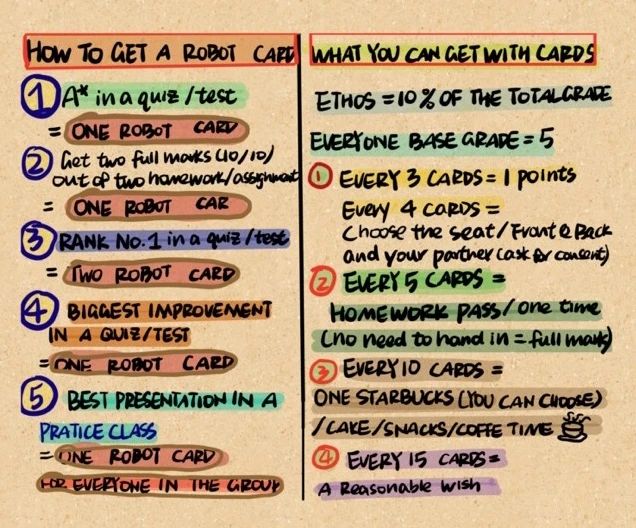 HOW TO GET A ROBOT CARD
1 A* in a quiz/test
= ONE ROBOT CARD
2 Get two full marks (10/10)
out of two homework/assignment
= ONE ROBOT CAR
3 RANK NO.1 in a quiz/test
= TWO ROBOT CARD
4 BIGGEST IMPROVEMENT
IN A QUIZ/TEST
= ONE ROBOT CARD
5 BEST PRESENTATION IN A
PRATICE CLASS
= ONE ROBOT CARD
FOR EVERYONE IN THE GROUP
WHAT YOU CAN GET WITH CARDS
ETHOS = 10% OF THE TOTAL GRADE
EVERYONE BASE GRADE = 5
1 EVERY 3 CARDS = 1 POINTS
Every 4 CARDS =
Choose the seat/Front & Back
and your partner (ask for consent)
2 EVERY 5 CARDS =
HOMEWORK PASS/one time
(no need to hand in = full mark)
3 EVERY 10 CARDS =
ONE STARBUCKS (YOU CAN CHOOSE)
/CAKE/SNACKS/COFFE TIME
4 EVERY 15 CARDS =
A Reasonable wish